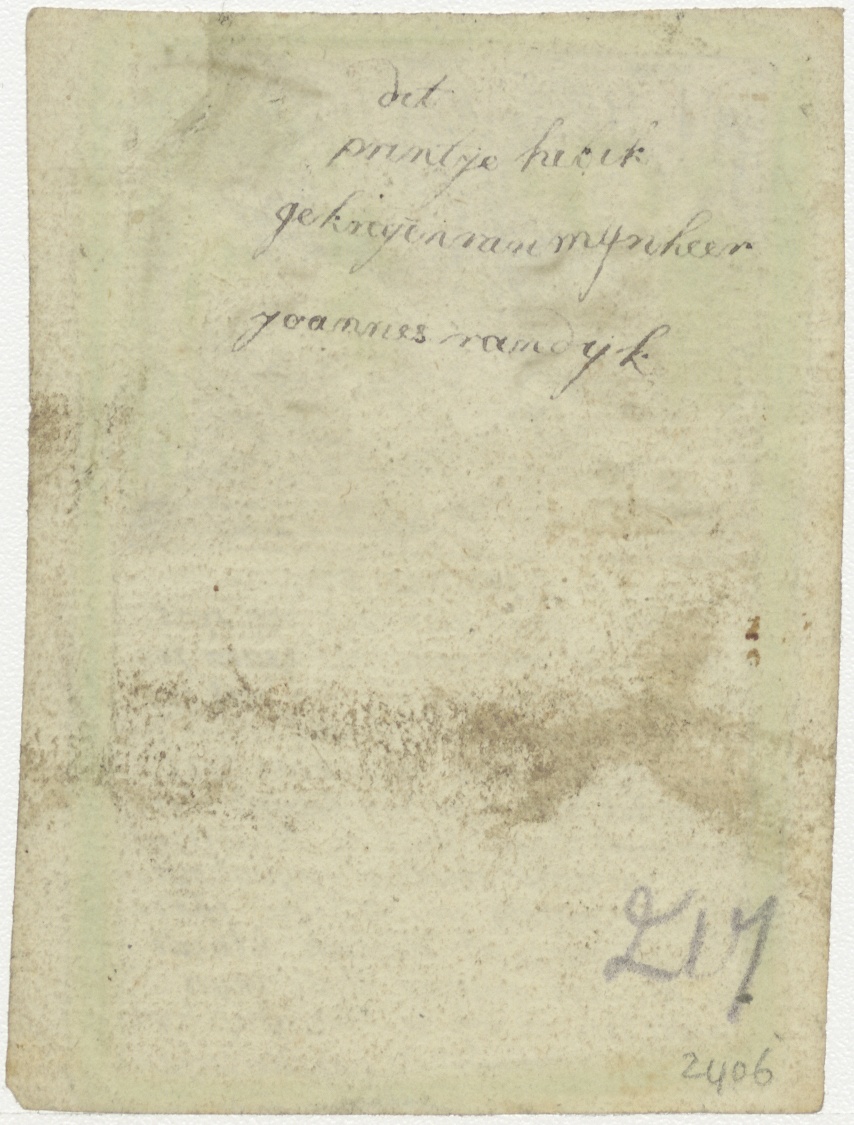 dit
printje heb ik
gekregen van mÿn heer
joannes van dÿk
217
2406